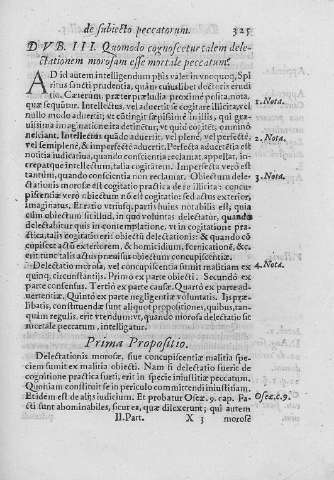 de subiecto peccatorum. 325
DVB. III. Quomodo cognoscetur talem dele-
ctationem morosam esse mortale peccatum.
AD id autem intelligendum plus valet in vnoquoq; Spi
ritus sancti prudentia, quàm cuiuslibet doctoris erudi
tio. Cæterum, præter præludia proxime posita, nota,
quæ sequũtur. Intellectus, vel aduertit se cogitare illicita, vel
nullo modo aduertit; vt cõtingit sæpissimè in illis, qui gra-
uissima imaginatione ita detinentur, vt quid cogitẽt, omninò
nesciant. Intellectus quãdo aduertit, vel plenè, vel perfectè;
vel semiplenè, & imperfectè aduertit. Perfecta aduertẽtia est
notitia iudicarius, quando conscientia reclamat, appellat, in-
crepatque intellectum, talia cogitãtem. Imperfecta verò est
tantùm, quando conscientia non reclamat. Obiectum dele-
ctationis morosæ est cogitatio practica de re illicita: concu-
piscentiæ verò obiectum nõ est cogitatio: sed actus exterior,
imaginatus. Et enim vtriusq; parui huius notabilis est; quia
cùm obiectum sit illud, in quo voluntas delectatur, quando
delectabitur quis in contemplatione, vt in cogitatione pra-
ctica, talis cogitatio erit obiectũ delectationis: & quando cõ
cupiscet actũ exteriorem, & homicidium, fornicationẽ, &c.
erit tunc talis actus prauus obiectum concupiscentiæ.
Delectatio morosa, vel concupiscentia sumit malitiam ex
quinq; circunstantijs. Primò ex parte obiecti. Secundò ex
parte consensus. Tertiò ex parte causæ. Quartò ex parte ad-
uertentiæ. Quintò ex parte negligentiæ voluntatis. Iis præ-
libatis, constituendæ sunt aliquot propositiones, quibus, tan-
quam regulis. erit vtendum: vt, quando morosa delectatio sit
mortale peccatum, intelligatur.
Prima Propositio.
Delectationis morosæ, siue concupiscentiæ malitia spe-
ciem sumit ex malitia obiecti. Nam si delectatio fuerit de
cognitione practica furti, erit in specie iniustitiæ peccatum.
Quoniam constituit se in periculo committendi iniustitiam.
Et idem est de alijs iudicium. Et probatur Oseæ. 9. cap. Fa-
cti sunt abominabiles, sicut ea, quæ dilexerunt; qui autem
II. Part. X 3 morosè
1. Nota.
2. Nota.
3. Nota.
4. Nota.
Oseæ. c. 9.